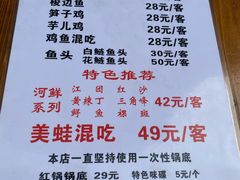 梭边鱼 28元/客
笋子鸡 28元/客
芋儿鸡 28元/客
鸡鱼混吃 28元/客
鱼头 白鲢鱼头 30元/客
花鲢鱼头 50元/客
特色推荐
河鲜系列 江团 红沙
黄辣丁 三角峰 42元/客
鲟鱼 裸斑
美蛙混吃 49元/客
本店一直坚持使用一次性锅底
红锅锅底 29元 特色味碟 5元/个